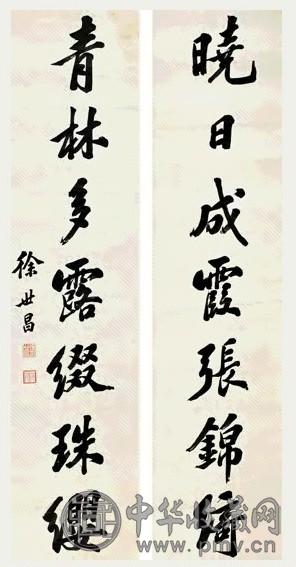 曉日成霞張錦綺
青林多露綴珠纓
徐世昌
中华收藏网
www.pmv.cn